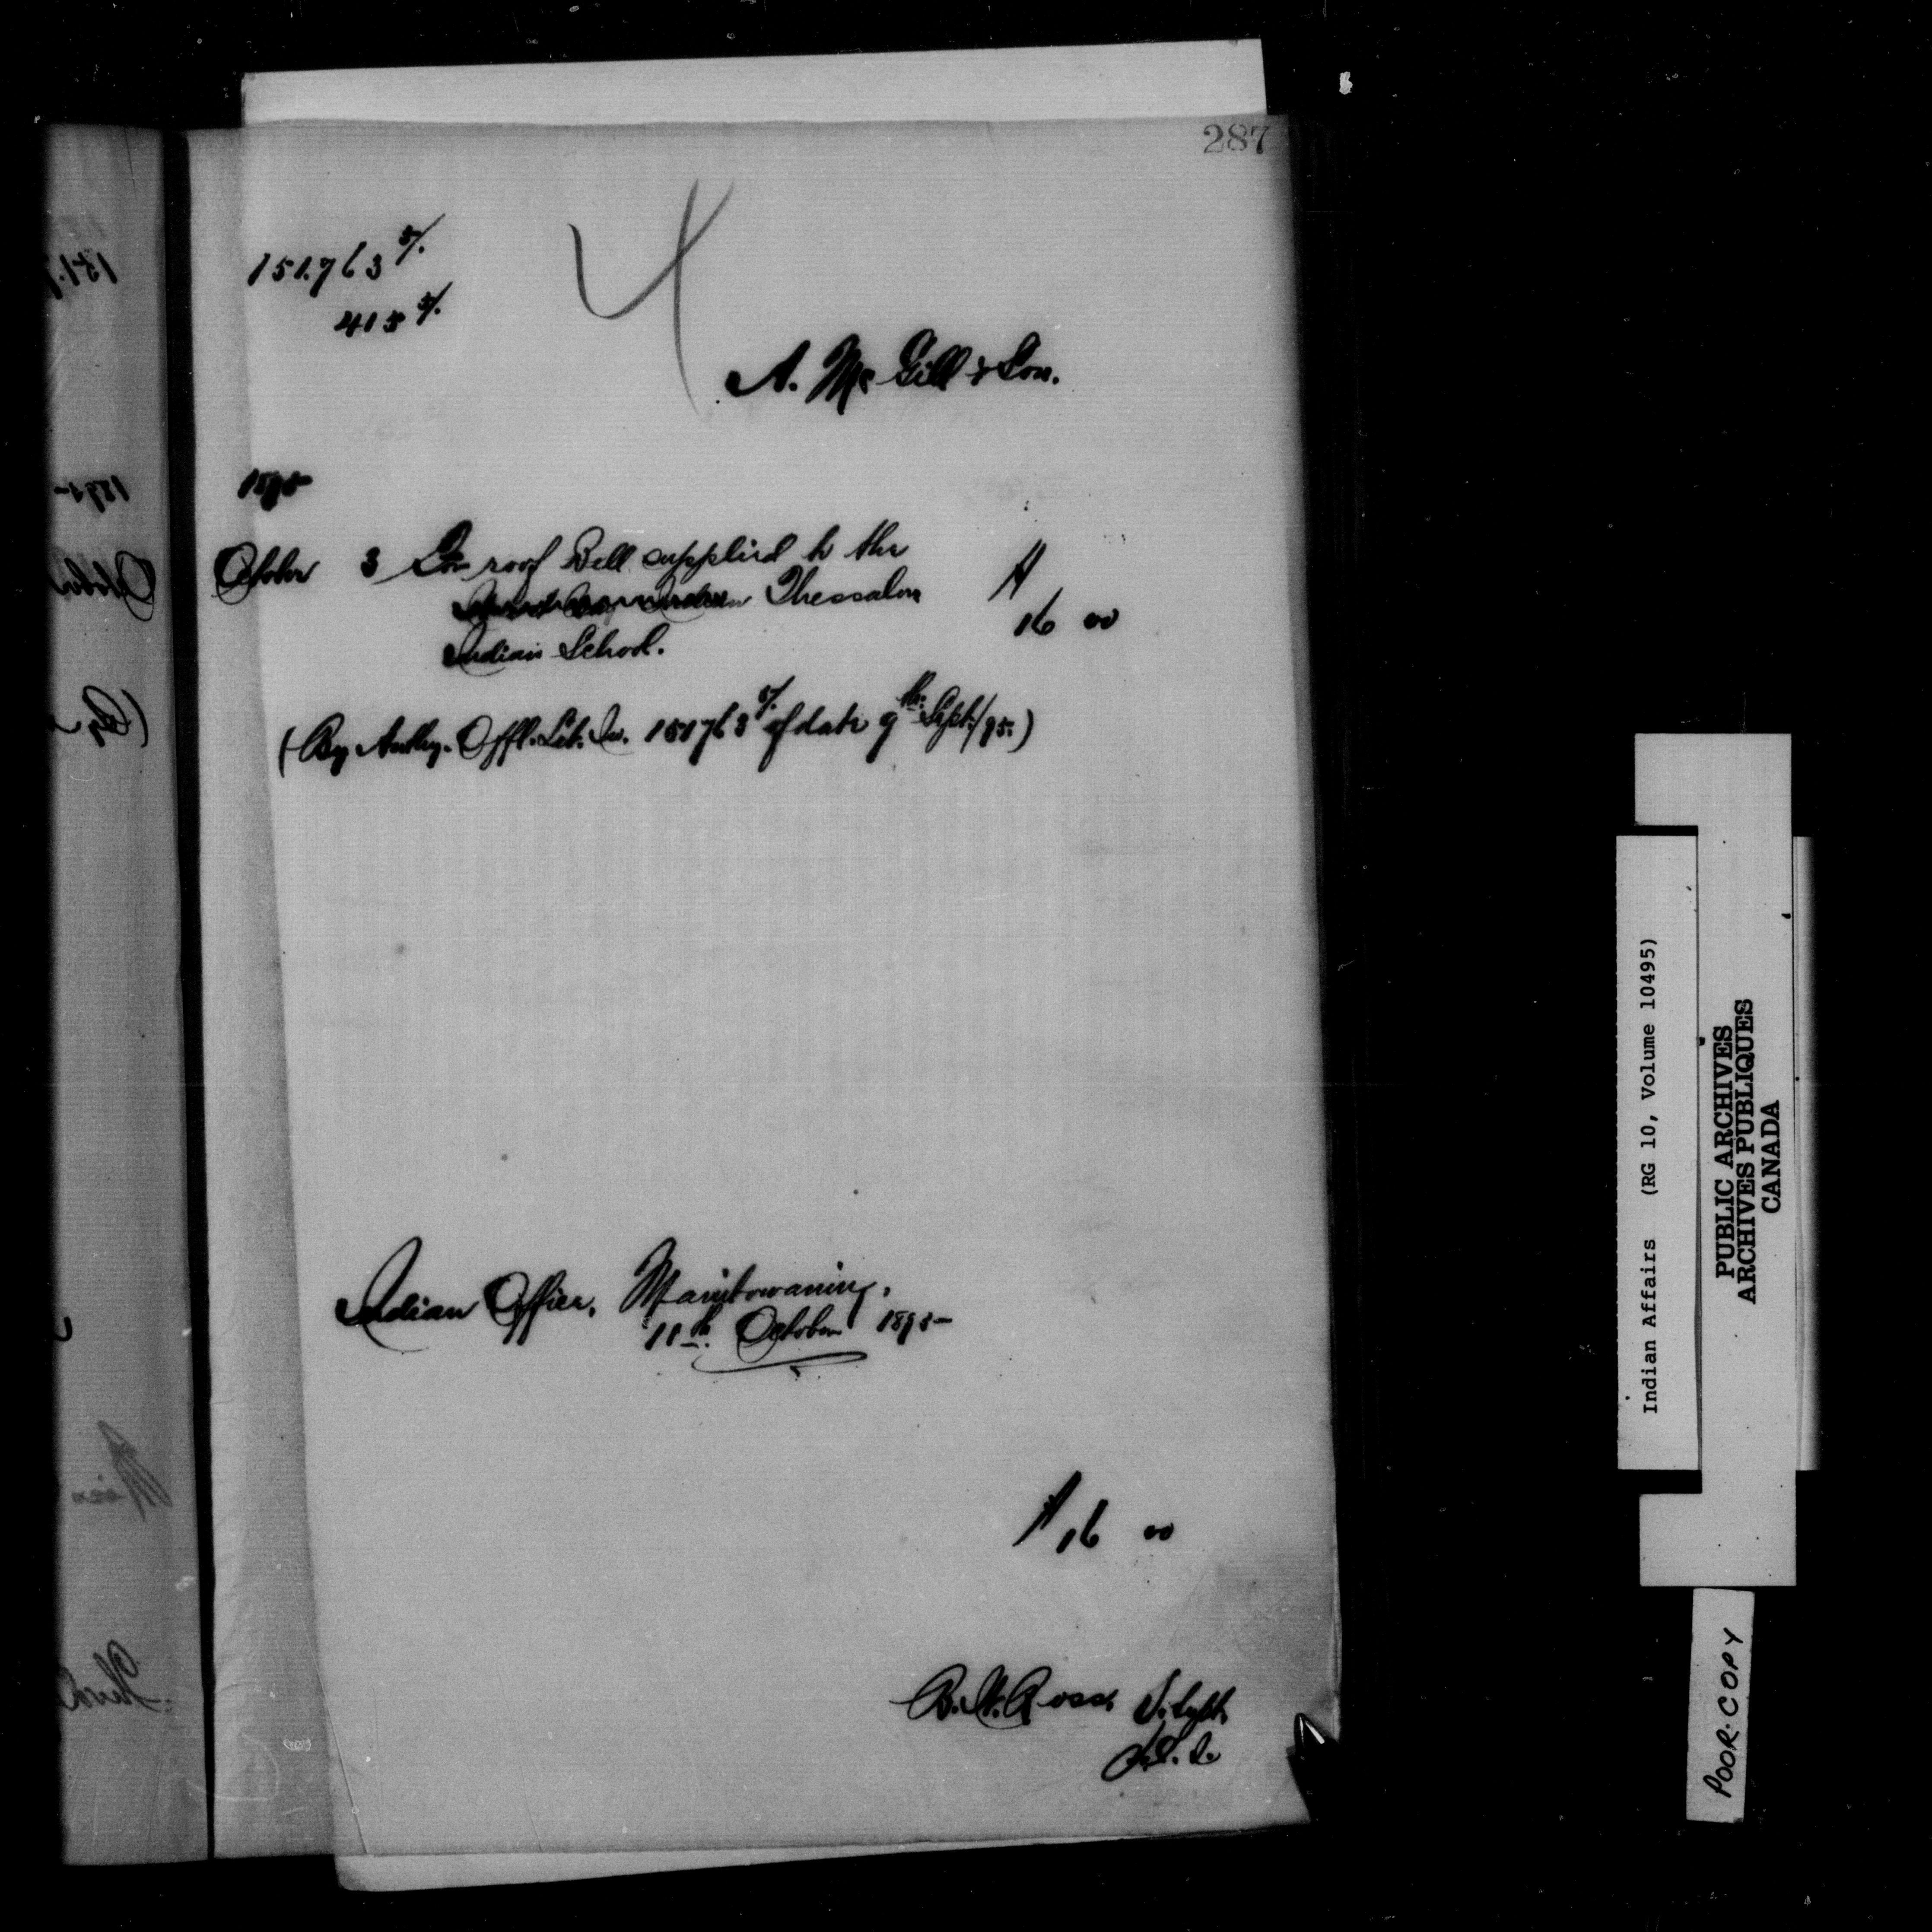 287
151.763 5/.
415 5/.
A. McGill & Son.
1895
October 3 For roof Bell supplied to the
Thessalon
Indian School.
$
16 00
(By Authy. Offl. Let. No. 151763 5/. of date 9th Sept./95.)
Indian Office, Manitowaning,
11th. October 1895
$16 00
B. W. Ross,
Indian Affairs (RG 10, Volume 10495)
PUBLIC ARCHIVES
ARCHIVES PUBLIQUES
CANADA
POOR COPY